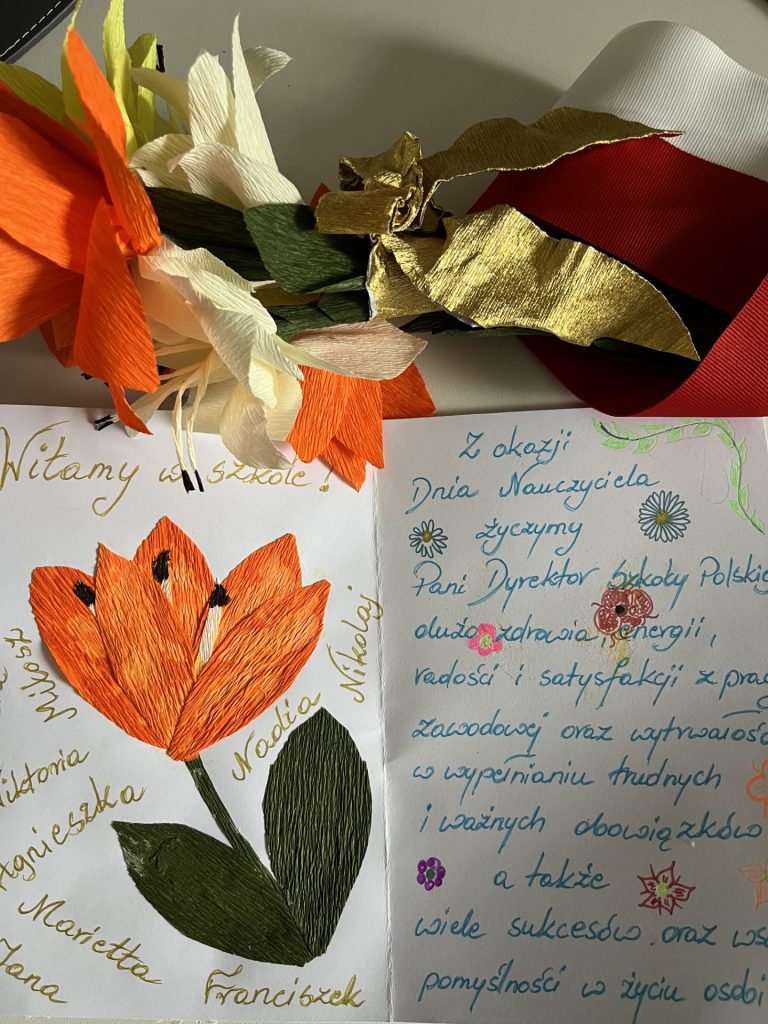 Witamy w szkole!
Mikołaj
Nikołaj
Nadia
Wiktoria
Agnieszka
Marietta
Jana
Franciszek
Z okazji
Dnia Nauczyciela
życzymy
Pani Dyrektor Szkoły Polskiej
dużo zdrowia, energii,
radości i satysfakcji z pracy
zawodowej oraz wytrwałości
w wypełnianiu trudnych
i ważnych obowiązków
a także
wiele sukcesów oraz
pomyślności w życiu